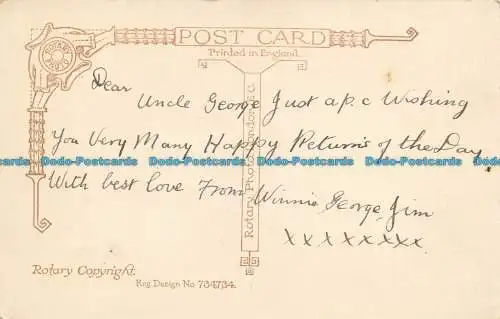 POST CARD
Printed in England.
ROTARY PHOTO
Dear
Uncle George Just a p.c Wishing
You Very Many Happy Return's of the Day
Dodo-Postcards Dodo-Postcards Dodo-Postcards Dodo-Postcards Dodo-Postcards
With best love From Winnie George Jim
x x x x x x x x
Rotary Photo London E.C.
Rotary Copyright.
Reg. Design No 734734.